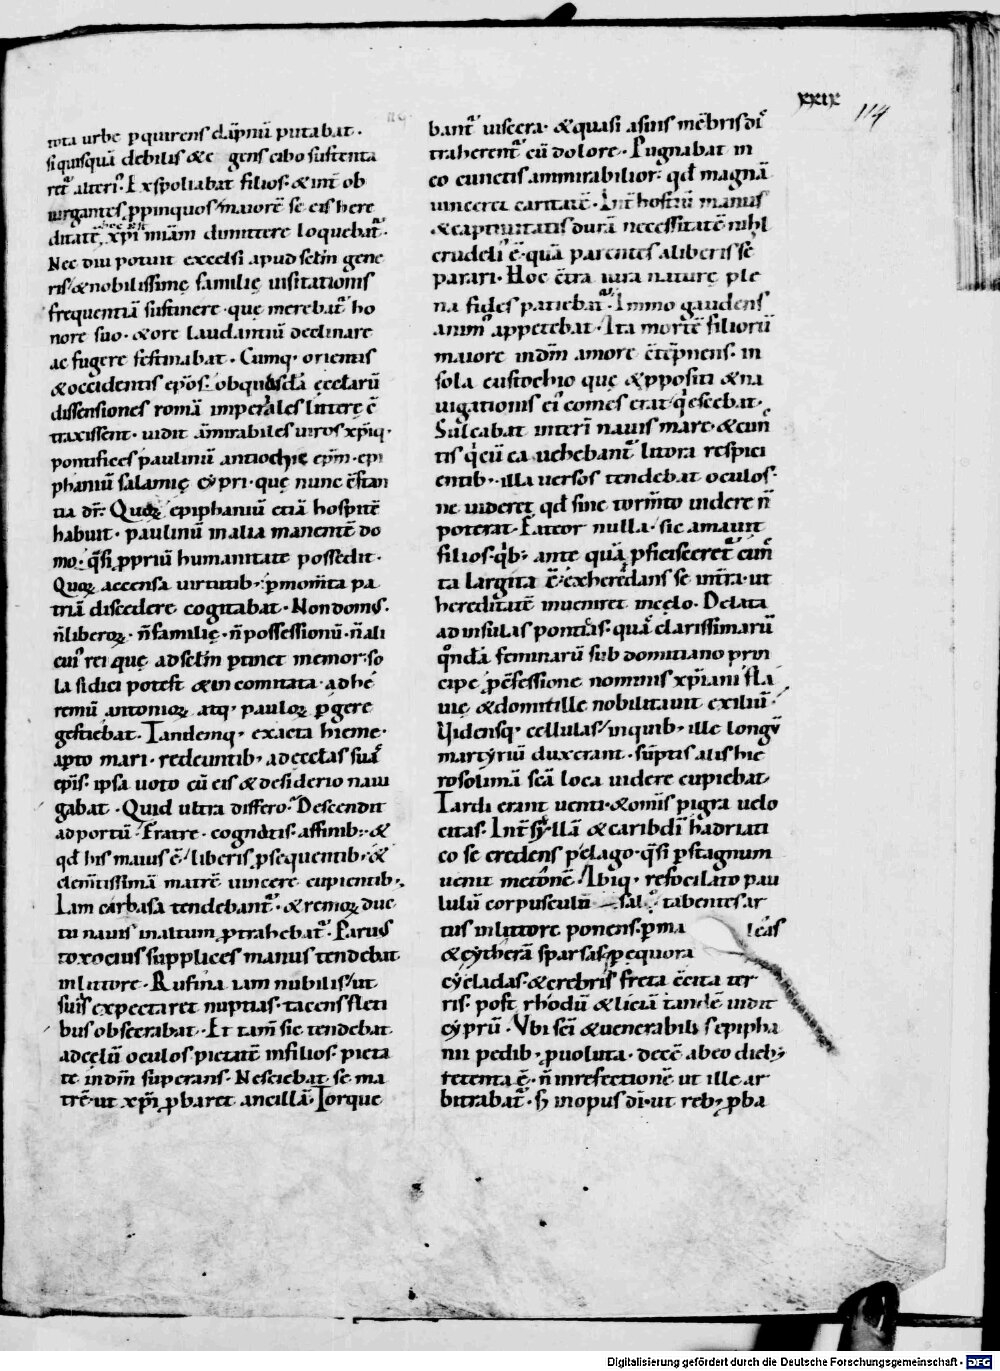 xxix 114
tota urbe ꝑquirens dāpnū putabat·
si quisquā debilis & e gens cibo sustenta
retᷣ alteriꝰ· Exspoliabat filios· & int̄ ob
iurgantes ꝓpinquos/ maiorē se eis here
ditatē xp̄i miam dimittere loquebatᷣ·
Nec diu potuit excelsi apud sc̄lm gene
ris & nobilissimę familię uisitationis
frequentiā sustinere· quę merebatᷣ ho
nore suo· & ore laudantiū declinare
ac fugere festinabat· Cumq· orientis
& occidentis ep̄os· ob quasdā ęcclarū
dissensiones romā imperiales litterę c̄
traxissent· uidit āmirabiles uiros xp̄iq·
pontifices paulinū antiochię ep̄m· epi
phaniū salamię cypri· quę nunc c̄stan
tia dr̄· Quoꝝ epiphaniū etiā hospitē
habuit· paulinū in alia manentē do
mo· q̄si ꝓpriū humanitate possedit·
Quoꝝ accensa uirtutib; ꝑ mom̄ta pa
triā discedere cogitabat· Non domꝰ·
n̄ liberoꝝ· n̄ familię· n̄ possessionū· n̄ ali
cuiꝰ rei quę ad sc̄lm ꝑtinet memor· so
la si dici potest & incomitata· ad he
remū antonioꝝ atq· pauloꝝ ꝑgere
gestiebat· Tandemq· exacta hieme·
apto mari· redeuntib; ad ęcclas suas
ep̄is· ipsa uoto cū eis & desiderio naui
gabat· Quid ultra differo? Descendit
ad portū· Fratre· cognatis· affinib; &
qd̄ his maius ē/ liberis ꝓsequentib; &
clem̄tissimā matrē uincere cupientib;
Iam carbasa tendebantᷣ· & remoꝝ duc
tu nauis in altum ꝓtrahebatᷣ· Paruus
toxocius supplices manus tendebat
in littore· Rufina iam nubilis/ ut
suas expectaret nuptias· tacens fleti
bus obsecrabat· Et tam̄ sic tendebat
ad cęlū oculos· pietatē in filios· pieta
te in dm̄ superans· Nesciebat se ma
trē· ut xp̄i ꝓbaret ancillā· Torque
bantᷣ uiscera· & quasi a suis mēbris di
traherentᷣ cū dolore· Pugnabat in
eo cunctis ammirabilior· qd̄ magnā
uinceret caritatē· Int̄ hostiū manus
& captiuitatis durā necessitatē nihl
crudeliꝰ ē· quā parentes a liberis se
parari· Hoc c̄tra iura naturę ple
na fides patiebatᷣ· Immo gaudens
animꝰ appetebat· Ita mortē filiorū
maiore in dm̄ amore c̄tēpnens· in
sola eustochio quę & ppositi & na
uigationis eiꝰ comes erat q̇escebat·
Sulcabat interī nauis mare· & cun
tis q̇ cū ea uehebantᷣ litora respici
entib; illa uersos tendebat oculos·
ne uideret qd̄ sine torm̄to uidere n̄
poterat· Fateor nulla sic amauit
filios· q̇b; ante quā ꝓficisceretᷣ cunc
ta largita ē· exheredans se in t̄ra· ut
hereditatē inueniret in cęlo· Delata
ad insulas pontias· quā clarissimarū
q̊ndā feminarū sub domitiano prin
cipe ꝑ c̄fessione nominis xp̄iani fla
uię & domitille nobilitauit exiliū·
Uidensq· cellulas/ in quib; ille longū
martyriū duxerant· sūptis alis hie
rosolimā sc̄a loca uidere cupiebat·
Tardi erant uenti· & omīs pigra uelo
citas· Int̄ syllā & caribdī hadriati
co se credens pelago· q̄si ꝑ stagnum
uenit metonē· Ibiq· refocilato pau
lulū corpusculū sal tabentes ar
tus in littore ponens· ꝑ ma leas
& cytherā sparsasq; ꝑ equora
cycladas· & crebris freta c̄cita ter
ris· post rhodū & liciā tandē uidit
cyprū· Ubi sc̄i & uenerabilis epipha
nii pedib; ꝓuoluta· decē ab eo dieb;
retenta ē· n̄ in refectionē ut ille ar
bitrabatᷣ· sꝫ in opus dī· ut reb; ꝓba
Digitalisierung gefördert durch die Deutsche Forschungsgemeinschaft - DFG